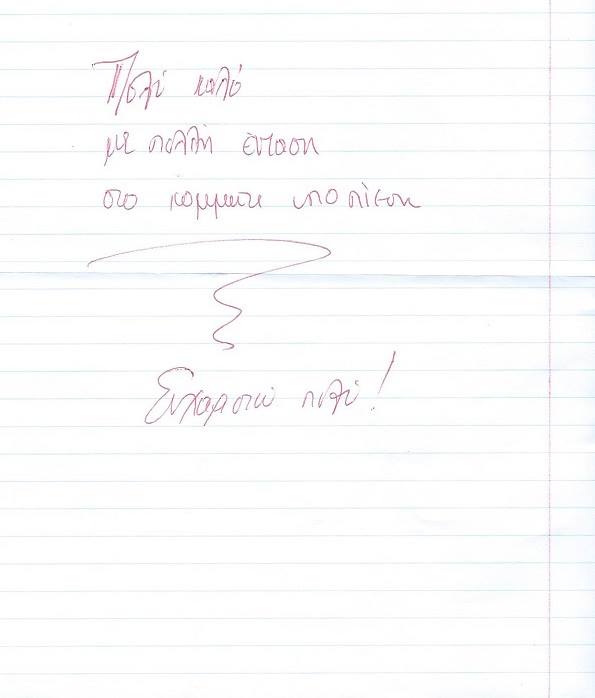 Πολύ καλό
με πολλή ένταση
στο κομμάτι υπο πίεση
Ευχαριστώ πολύ!